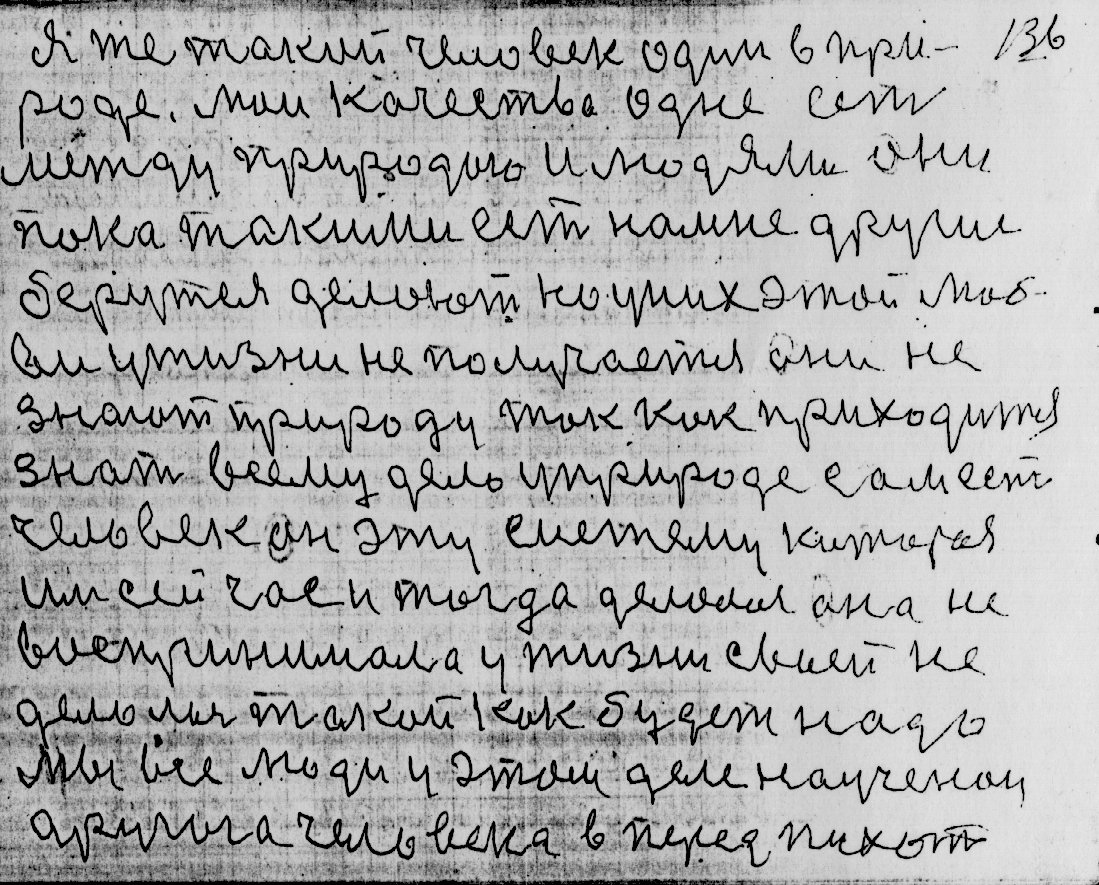 Я же такий человек один в при- 136
роде. мои качества одне сет
между природою и людями они
пока такими ест на мне другие
берутся делоют но у них этой люб-
ви у жизни не получается они не
знают природу так как приходится
знат всему дело у природе сам ест
человек он эту систему которая
им сей час и тогда делолас она не
воспринимала у жизни своей не
делолас такой как будет надо
Мы все люди у этом деле
другога человека в перед пихот